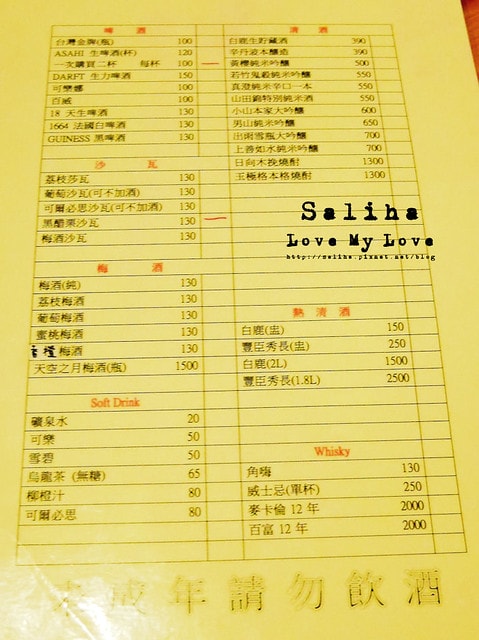 啤 酒
台灣金牌(瓶) 100
ASAHI 生啤酒(杯) 120
一次購買二杯 每杯 100
DARFT 生力啤酒 150
可樂娜 100
百威 100
18 天生啤酒 130
1664 法國白啤酒 130
GUINESS 黑啤酒 130
沙 瓦
荔枝莎瓦 130
葡萄沙瓦(可不加酒) 130
可爾必思沙瓦(可不加酒) 130
黑醋栗沙瓦 130
梅酒沙瓦 130
梅 酒
梅酒(純) 130
荔枝梅酒 130
葡萄梅酒 130
蜜桃梅酒 130
梅酒 130
天空之月梅酒(瓶) 1500
Soft Drink
礦泉水 20
可樂 50
雪碧 50
烏龍茶 (無糖) 65
柳橙汁 80
可爾必思 80
清 酒
白鹿生貯藏酒 390
辛丹波本釀造 390
黃櫻純米吟釀 500
若竹鬼殺純米吟釀 550
真澄純米辛口一本 550
山田錦特別純米酒 550
小山本家大吟釀 600
男山純米吟釀 650
出羽雪瓶大吟釀 700
上善如水純米吟釀 700
日向木挽燒酎 1300
玉極格本格燒酎 1300
Saliha
Love My Love
http://saliha.pixnet.net/blog
熱 清 酒
白鹿(盅) 150
豐臣秀長(盅) 250
白鹿(2L) 1500
豐臣秀長(1.8L) 2500
Whisky
角嗨 130
威士忌(單杯) 250
麥卡倫 12 年 2000
百富 12 年 2000
未 成 年 請 勿 飲 酒